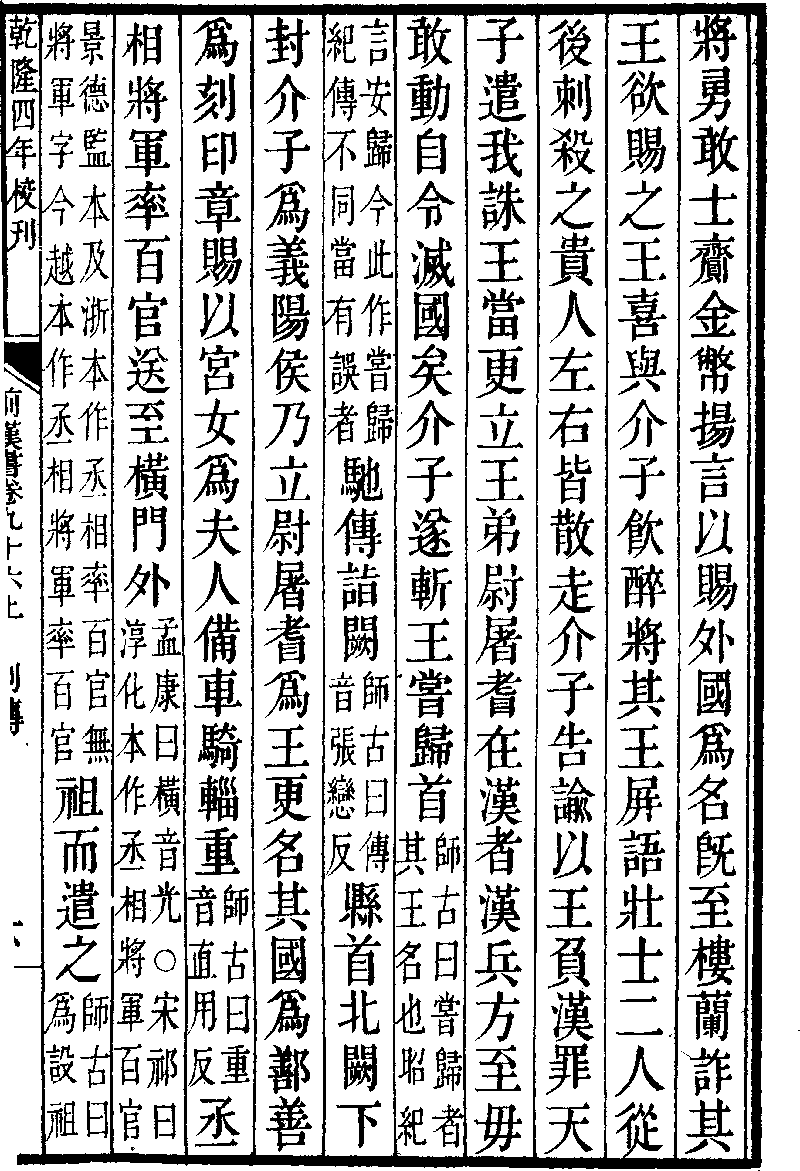 將勇敢士齎金幣揚言以賜外國爲名旣至樓蘭詐其
王欲賜之王喜與介子飮醉將其王屏語壯士二人從
後刺殺之貴人左右皆散走介子告諭以王負漢罪天
子遣我誅王當更立王弟尉屠耆在漢者漢兵方至毋
敢動自令滅國矣介子遂斬王嘗歸首師古曰嘗歸者其王名也昭紀
言安歸今此作嘗歸紀傳不同當有誤者馳傳詣闕師古曰傳音張戀反縣首北闕下
封介子爲義陽侯乃立尉屠耆爲王更名其國爲鄯善
爲刻印章賜以宮女爲夫人備車騎輜重師古曰重音直用反丞
相將軍率百官送至橫門外孟康曰橫音光○宋祁曰淳化本作丞相將軍百官
景德監本及浙本作丞相率百官無將軍字今越本作丞相將軍率百官祖而遣之師古曰爲設祖
乾隆四年校刊 前漢書卷九十六上 列傳